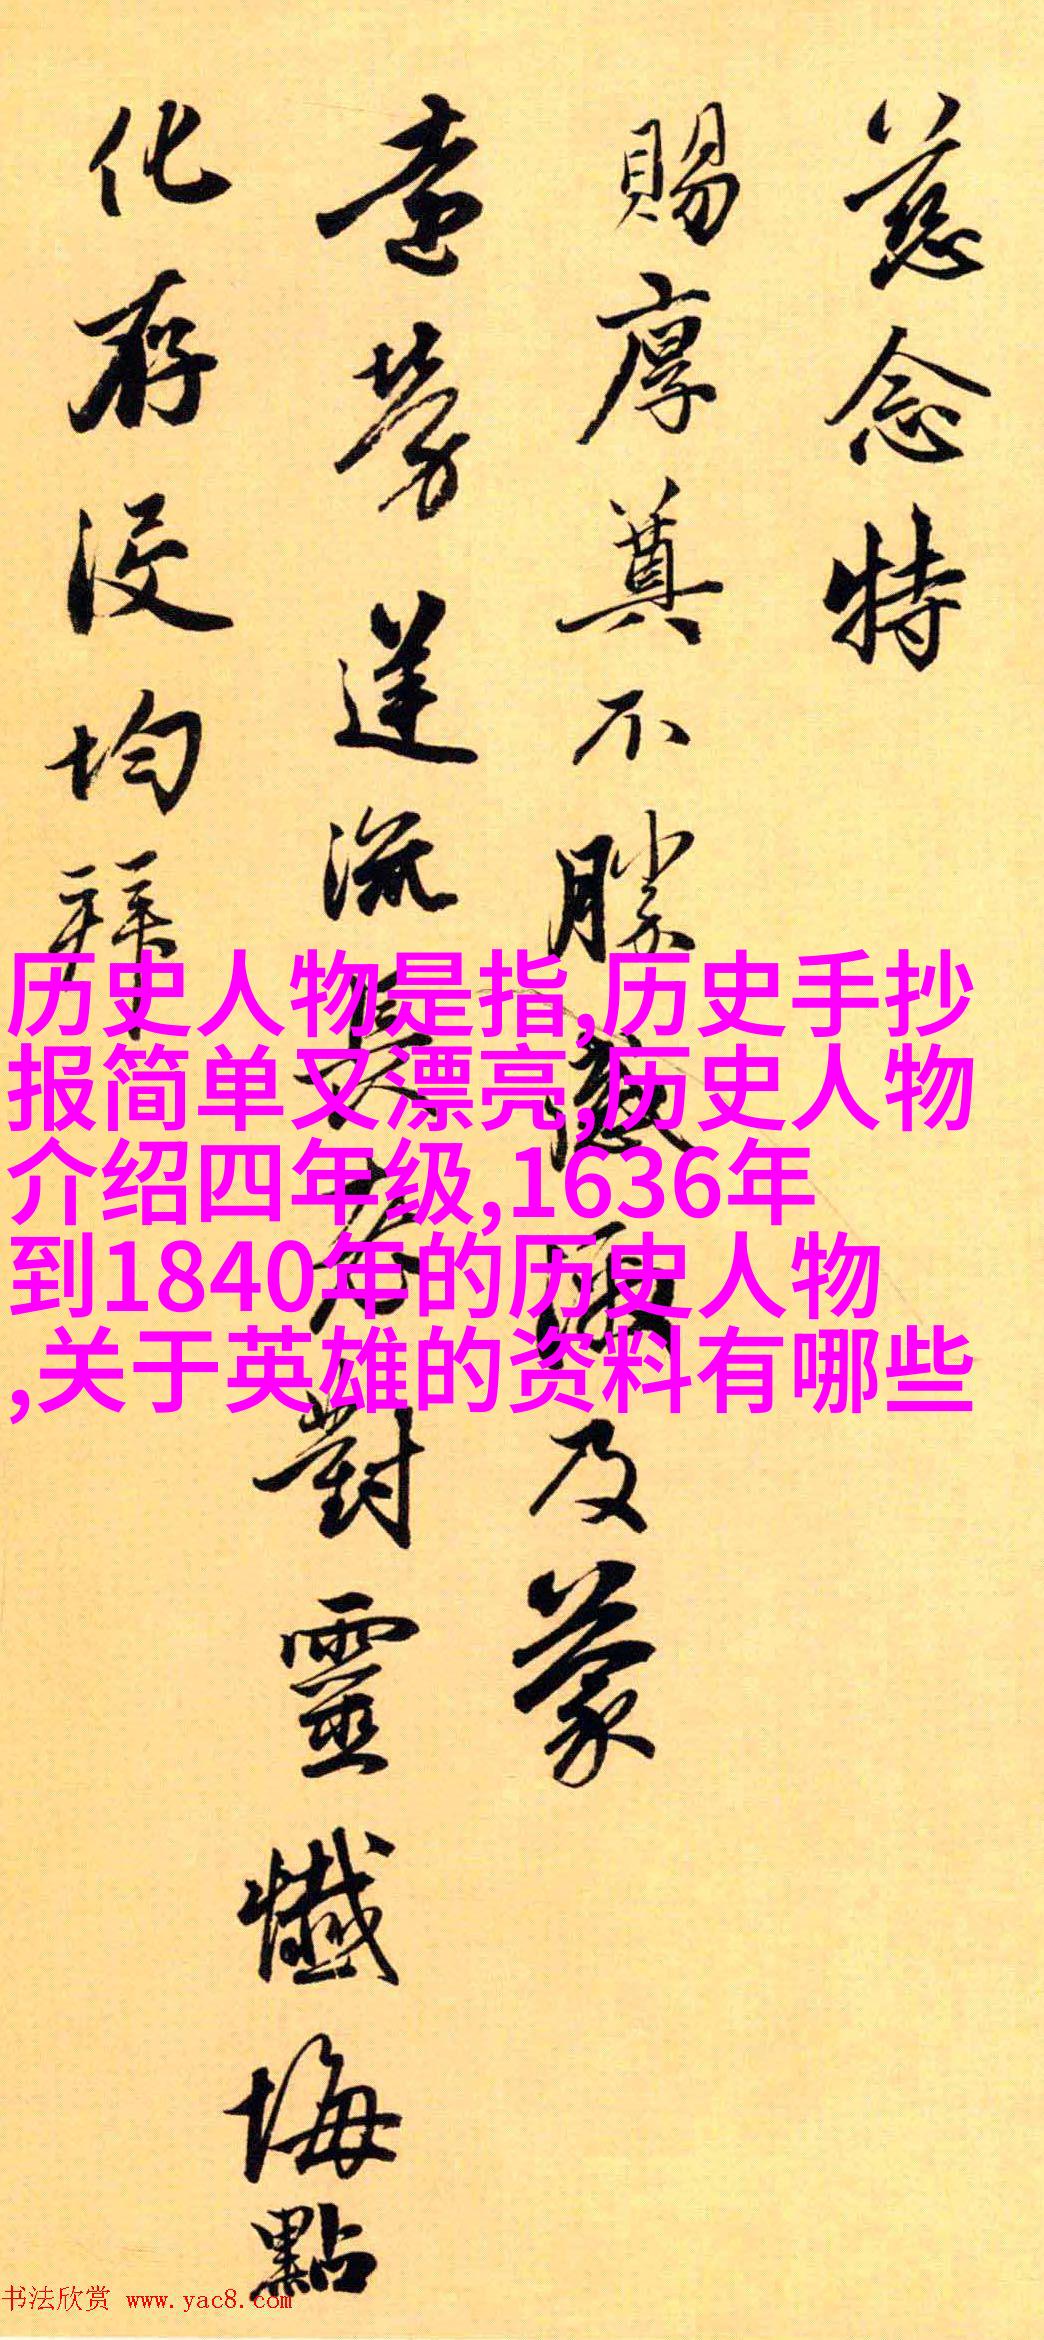 慈念特
賜厚奠不勝感及蒙
勞達流長老對靈懺悔點
化存没均拜
历史人物是指,历史手抄
报简单又漂亮,历史人物
介绍四年级,1636年
到1840年的历史人物
,关于英雄的资料有哪些
书法欣赏 www.yac8.com